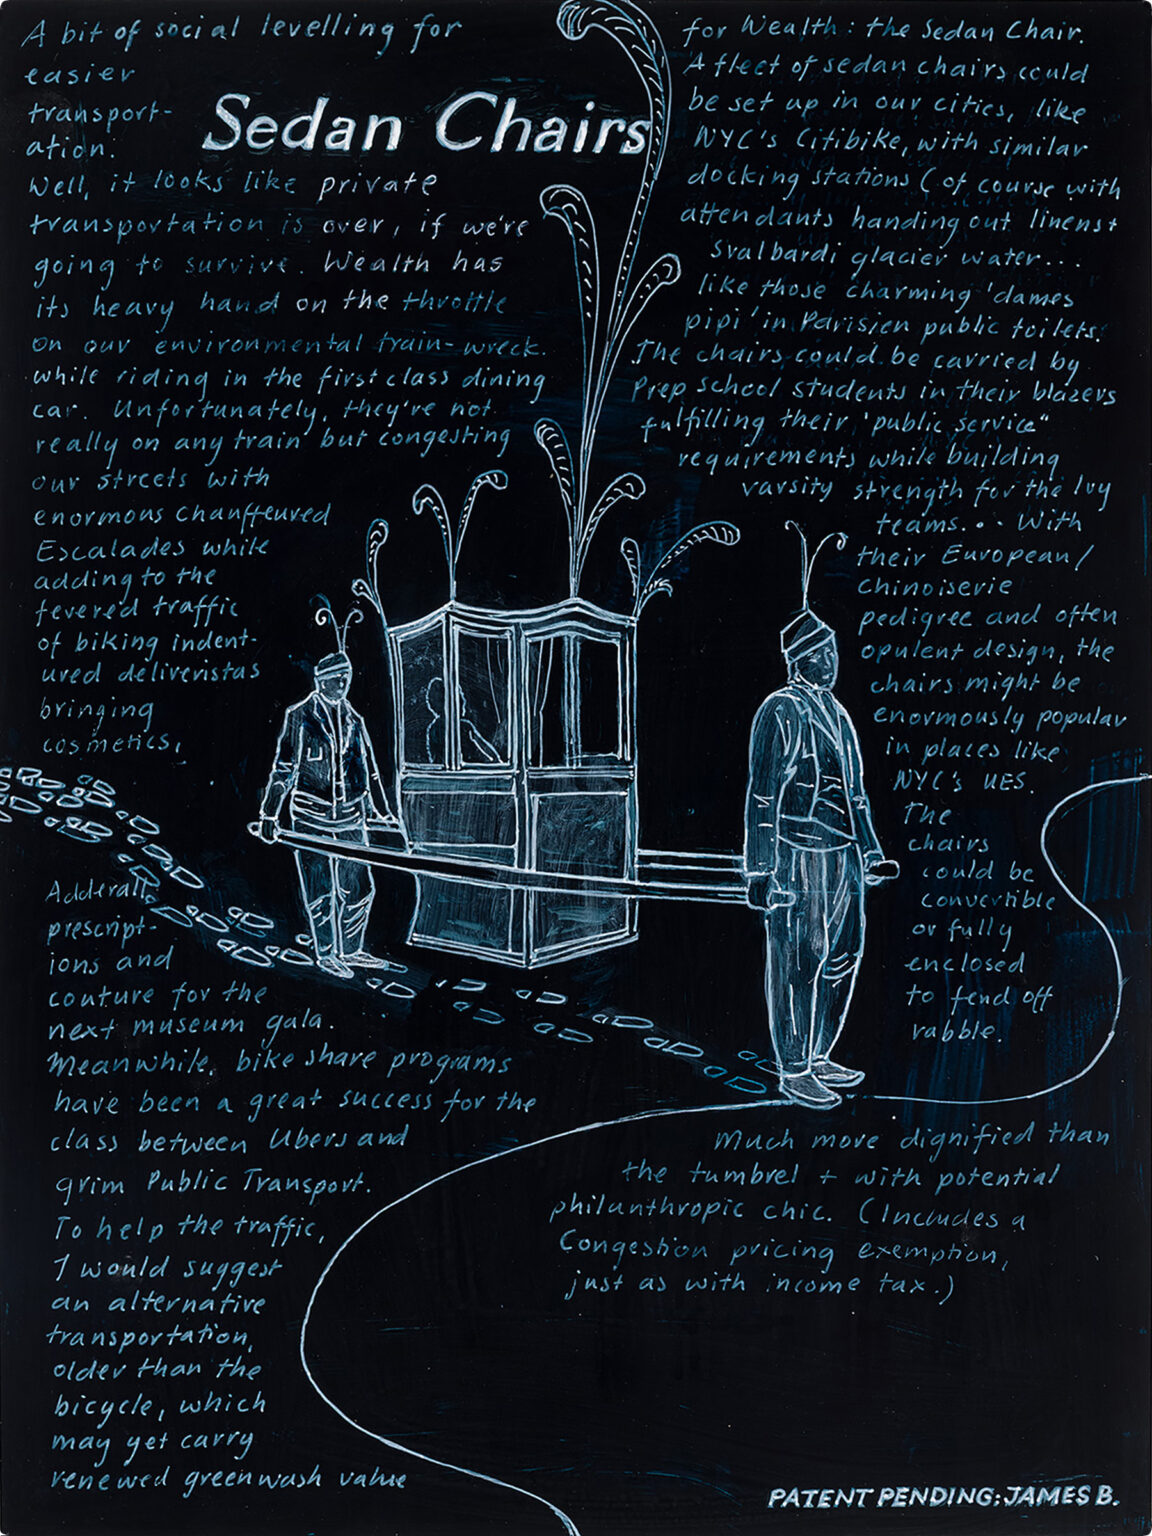 Sedan Chairs
A bit of social levelling for
easier
transport-
ation.
Well, it looks like private
transportation is over, if we're
going to survive. Wealth has
its heavy hand on the throttle
on our environmental train-wreck.
while riding in the first class dining
car. Unfortunately, they're not
really on any train but congesting
our streets with
enormous chauffeured
Escalades while
adding to the
fevered traffic
of biking indent-
ured deliveristas
bringing
cosmetics,
Adderall
prescript-
ions and
couture for the
next museum gala.
Meanwhile, bike share programs
have been a great success for the
class between Ubers and
grim Public Transport.
To help the traffic,
I would suggest
an alternative
transportation,
older than the
bicycle, which
may yet carry
renewed greenwash value
for Wealth: the Sedan Chair.
A fleet of sedan chairs could
be set up in our cities, like
NYC's Citibike, with similar
docking stations (of course with
attendants handing out linens +
Svalbardi glacier water...
like those charming 'dames
pipi' in Parisien public toilets.
The chairs could be carried by
Prep School students in their blazers
fulfilling their "public service"
requirements while building
varsity strength for the Ivy
teams... With
their European/
Chinoiserie
pedigree and often
opulent design, the
chairs might be
enormously popular
in places like
NYC's UES.
The
chairs
could be
convertible
or fully
enclosed
to fend off
rabble.
Much more dignified than
the tumbrel + with potential
philanthropic chic. (Includes a
Congestion pricing exemption,
just as with income tax.)
PATENT PENDING: JAMES B.